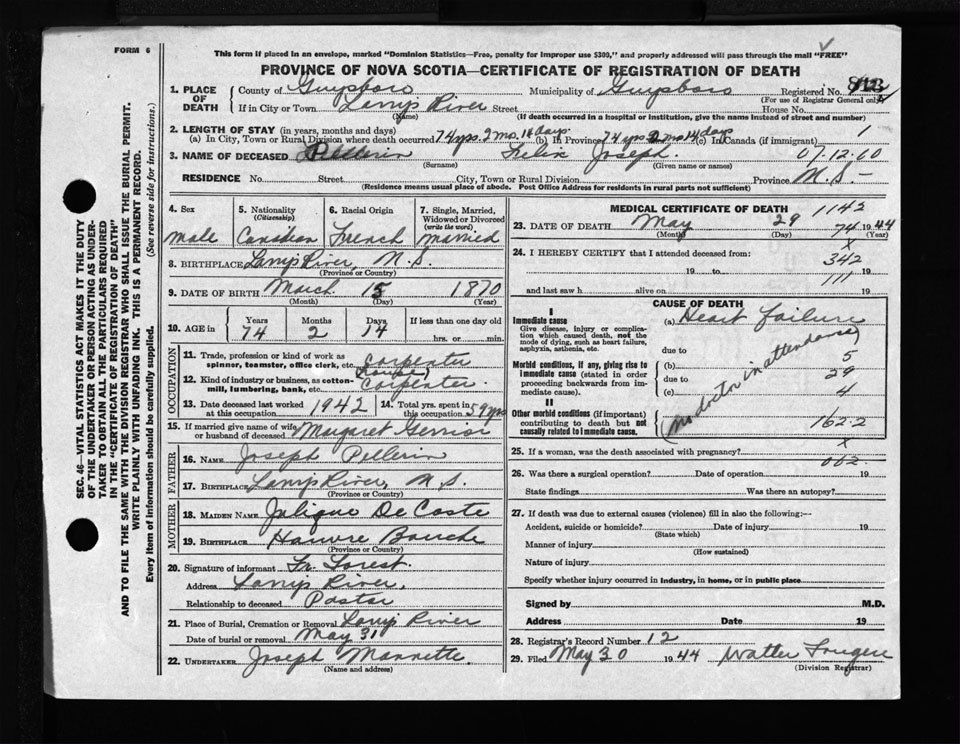 FORM 6
This form if placed in an envelope, marked "Dominion Statistics—Free, penalty for improper use $300," and properly addressed will pass through the mail "FREE"
PROVINCE OF NOVA SCOTIA—CERTIFICATE OF REGISTRATION OF DEATH
1. PLACE OF DEATH
County of Guysboro Municipality of Guysboro Registered No.
(For use of Registrar General only)
If in City or Town Larrys River Street House No.
(Name) (If death occurred in a hospital or institution, give the name instead of street and number)
2. LENGTH OF STAY (in years, months and days)
(a) In City, Town or Rural Division where death occurred 74 yrs. 2 mo. 14 days. (b) In Province 74 yrs 2 mo. 14 days (c) In Canada (if immigrant) 1
3. NAME OF DECEASED Pellerin Felix Joseph. 07.12.60
(Surname) (Given name or names)
RESIDENCE No. Street City, Town or Rural Division Province N.S.—
(Residence means usual place of abode. Post Office Address for residents in rural parts not sufficient)
4. Sex
male
5. Nationality (Citizenship)
Canadian
6. Racial Origin
French
7. Single, Married, Widowed or Divorced (write the word)
married
8. BIRTHPLACE Larrys River, N.S.
(Province or Country)
9. DATE OF BIRTH March 15 1870
(Month) (Day) (Year)
10. AGE in
Years Months Days If less than one day old
74 2 14 hrs. or min.
OCCUPATION
11. Trade, profession or kind of work as spinner, teamster, office clerk, etc. Carpenter
12. Kind of industry or business, as cotton-mill, lumbering, bank, etc. Carpenter.
13. Date deceased last worked at this occupation 1942
14. Total yrs. spent in this occupation 59 yrs
15. If married give name of wife or husband of deceased Margaret
FATHER
16. NAME Joseph Pellerin
17. BIRTHPLACE Larrys River, N.S.
(Province or Country)
MOTHER
18. MAIDEN NAME De Coste
19. BIRTHPLACE Bouche
(Province or Country)
20. Signature of informant Fr. Forest
Address Larrys River,
Relationship to deceased Pastor
21. Place of Burial, Cremation or Removal Larrys River
Date of burial or removal May 31
22. UNDERTAKER Joseph Mannette
(Name and address)
MEDICAL CERTIFICATE OF DEATH 1142
23. DATE OF DEATH May 29 1944
(Month) (Day) (Year)
74
x
24. I HEREBY CERTIFY that I attended deceased from:
342
19 to 19
111
and last saw h alive on 19
CAUSE OF DEATH
I
Immediate cause
Give disease, injury or complication which caused death, not the mode of dying, such as heart failure, asphyxia, asthenia, etc.
(a) Heart failure
due to
Morbid conditions, if any, giving rise to immediate cause (stated in order proceeding backwards from immediate cause).
(b) 5
due to 29
(c) 4
no doctor in attendance
II
Other morbid conditions (if important) contributing to death but not causally related to immediate cause.
162.2
25. If a woman, was the death associated with pregnancy? x
002.
26. Was there a surgical operation? Date of operation 19
State findings Was there an autopsy?
27. If death was due to external causes (violence) fill in also the following:—
Accident, suicide or homicide? Date of injury 19
(State which)
Manner of injury
(How sustained)
Nature of injury
Specify whether injury occurred in industry, in home, or in public place
Signed by M.D.
Address Date 19
28. Registrar's Record Number 12
29. Filed May 30 1944 Walter Fougere
(Division Registrar)
SEC. 46—VITAL STATISTICS ACT MAKES IT THE DUTY
OF THE UNDERTAKER OR PERSON ACTING AS UNDER-
TAKER TO OBTAIN ALL THE PARTICULARS REQUIRED
IN THE "CERTIFICATE OF REGISTRATION OF DEATH"
AND TO FILE THE SAME WITH THE DIVISION REGISTRAR WHO SHALL ISSUE THE BURIAL PERMIT.
WRITE PLAINLY WITH UNFADING INK. THIS IS A PERMANENT RECORD.
Every item of information should be carefully supplied. (See reverse side for instructions.)